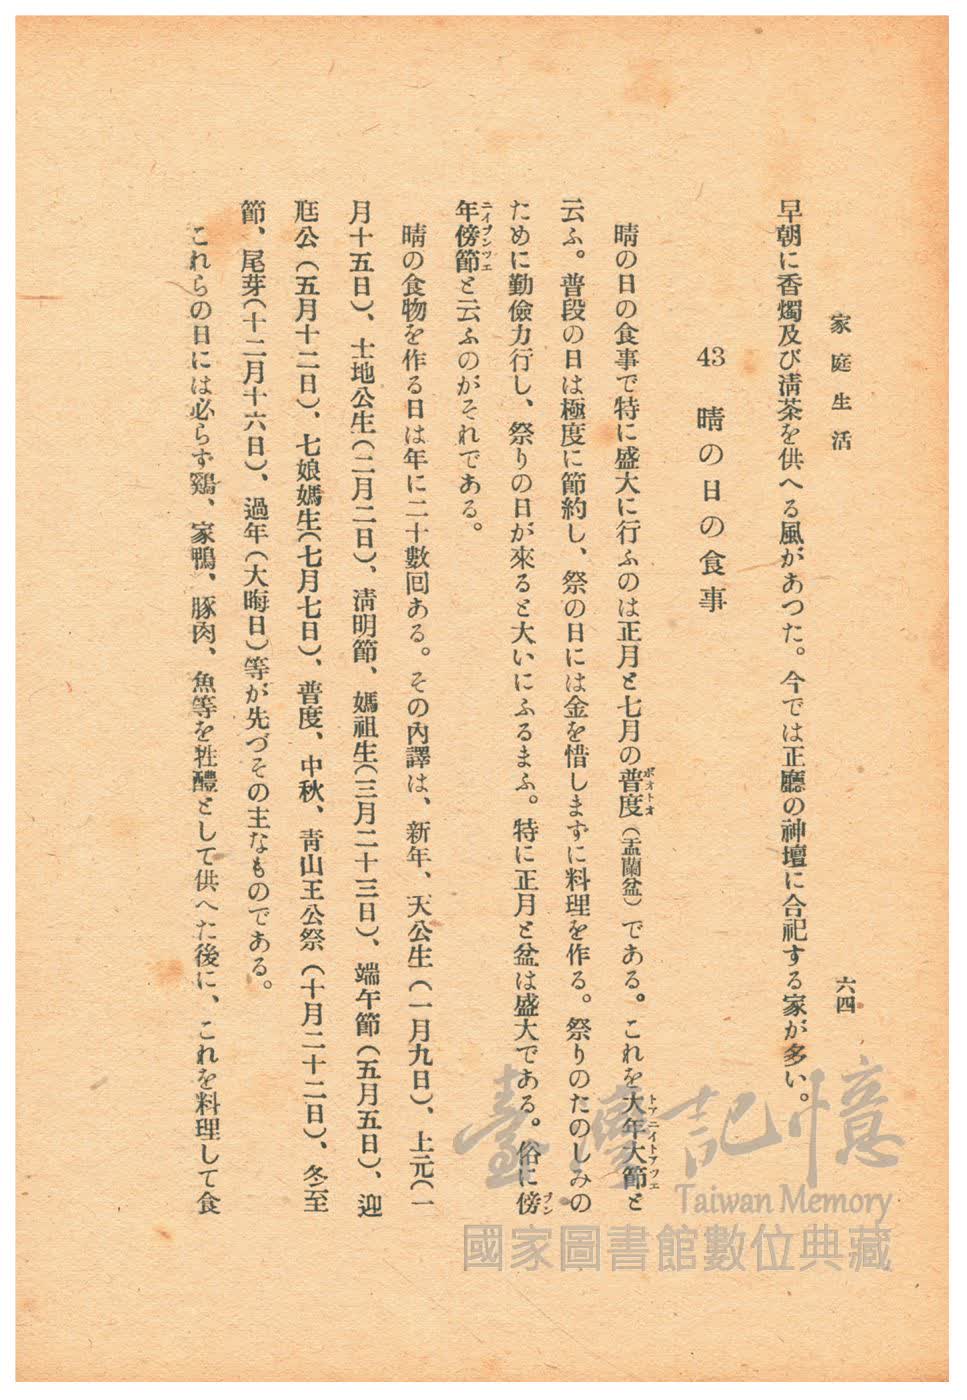 家庭生活
六四
早朝に香燭及び淸茶を供へる風があつた。今では正廳の神壇に合祀する家が多い。
43 晴の日の食事
晴の日の食事で特に盛大に行ふのは正月と七月の普度（盂蘭盆）である。これを大年大節と
ポオトオ
トアニイトアツエ
云ふ。普段の日は極度に節約し、祭の日には金を惜しまずに料理を作る。祭りのたのしみの
ために勤儉力行し、祭りの日が來ると大いにふるまふ。特に正月と盆は盛大である。俗に傍
ヲン
年傍節と云ふのがそれである。
ニイヲンツエ
晴の食物を作る日は年に二十數囘ある。その內譯は、新年、天公生（一月九日）、上元（一
月十五日）、土地公生（二月二日）、淸明節、媽祖生（三月二十三日）、端午節（五月五日）、迎
尫公（五月十二日）、七娘媽生（七月七日）、普度、中秋、靑山王公祭（十月二十二日）、冬至
節、尾芽（十二月十六日）、過年（大晦日）等が先づその主なものである。
これらの日には必らず鷄、家鴨、豚肉、魚等を牲醴として供へた後に、これを料理して食
臺灣記憶
Taiwan Memory
國家圖書館數位典藏